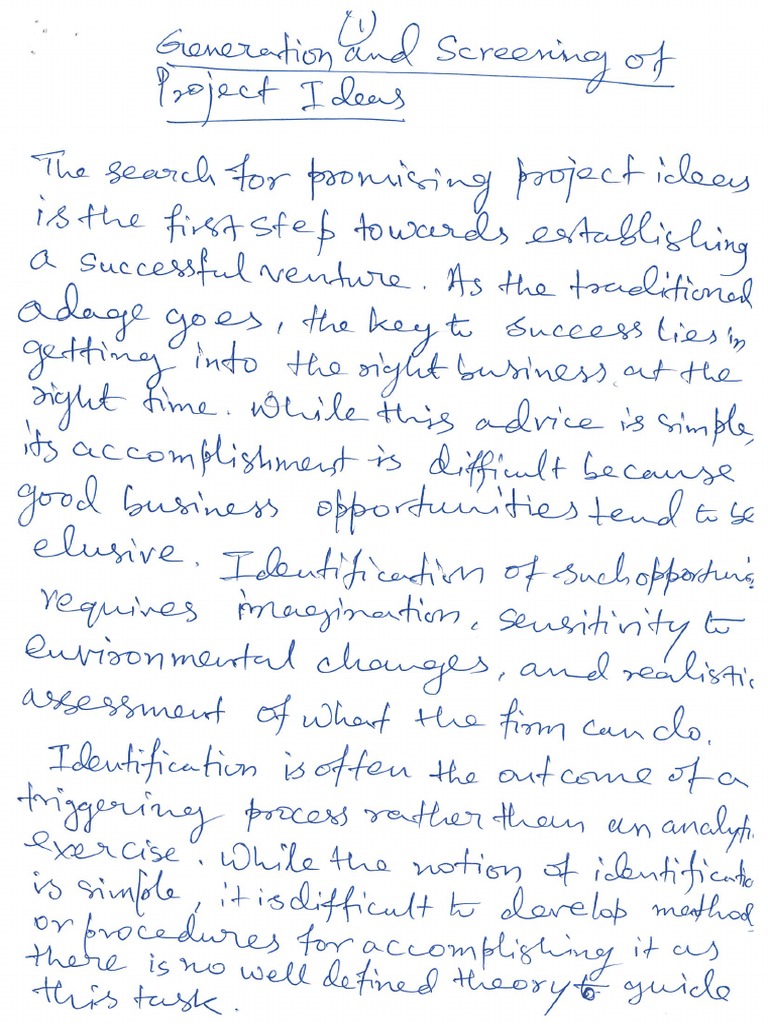 (1)
Generation and Screening of
Project Ideas
The search for promising project ideas
is the first step towards establishing
a successful venture. As the traditional
adage goes, the key to success lies in
getting into the right business at the
right time. While this advice is simple,
its accomplishment is difficult because
good business opportunities tend to be
elusive. Identification of such opportuni
requires imagination, sensitivity to
environmental changes, and realistic
assessment of what the firm can do.
Identification is often the outcome of a
triggering process rather than an analyti
exercise. While the notion of identificatio
is simple, it is difficult to develop method
or procedures for accomplishing it as
there is no well defined theory to guide
this task.